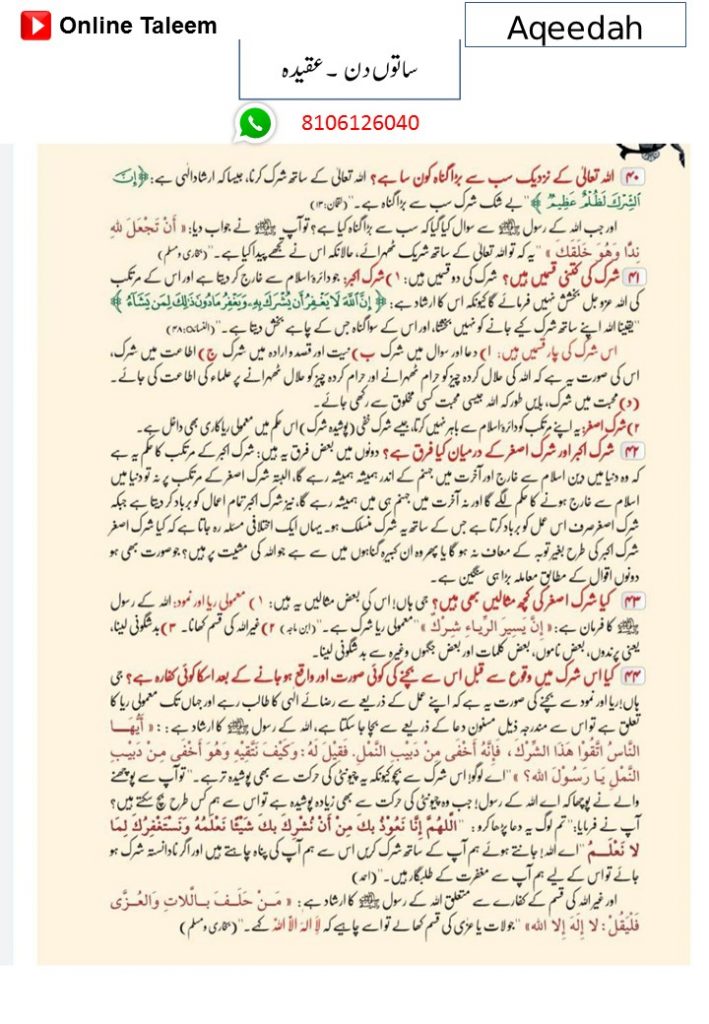 Online Taleem
Aqeedah
ساتوں دن ۔ عقیدہ
8106126040
۴۰ اللہ تعالیٰ کے نزدیک سب سے بڑا گناہ کون سا ہے؟ اللہ تعالیٰ کے ساتھ شرک کرنا، جیسا کہ ارشاد الٰہی ہے: ﴿إِنَّ
الشِّرْكَ لَظُلْمٌ عَظِيمٌ﴾ "بے شک شرک سب سے بڑا گناہ ہے۔" (لقمان: ۱۳)
اور جب اللہ کے رسول ﷺ سے سوال کیا گیا کہ سب سے بڑا گناہ کیا ہے؟ تو آپ ﷺ نے جواب دیا: « أَنْ تَجْعَلَ للهِ
نِدًّا وَهُوَ خَلَقَكَ » "یہ کہ تو اللہ تعالیٰ کے ساتھ شریک ٹھہرائے، حالانکہ اس نے تجھے پیدا کیا ہے۔" (بخاری و مسلم)
۴۱ شرک کی کتنی قسمیں ہیں؟ شرک کی دو قسمیں ہیں: ۱) شرک اکبر: جو دائرۂ اسلام سے خارج کر دیتا ہے اور اس کے مرتکب
کی اللہ عزوجل بخشش نہیں فرمائے گا کیونکہ اس کا ارشاد ہے: ﴿إِنَّ اللَّهَ لَا يَغْفِرُ أَن يُشْرَكَ بِهِ وَيَغْفِرُ مَا دُونَ ذَلِكَ لِمَن يَشَاءُ﴾
"یقینا اللہ اپنے ساتھ شرک کیے جانے کو نہیں بخشتا، اور اس کے سوا گناہ جس کے چاہے بخش دیتا ہے۔" (النساء: ۴۸)
اس شرک کی چار قسمیں ہیں: ا) دعا اور سوال میں شرک ب) نیت اور قصد و ارادہ میں شرک ج) اطاعت میں شرک،
اس کی صورت یہ ہے کہ اللہ کی حلال کردہ چیز کو حرام ٹھہرانے اور حرام کردہ چیز کو حلال ٹھہرانے پر علماء کی اطاعت کی جائے۔
(د) محبت میں شرک، بایں طور کہ اللہ جیسی محبت کسی مخلوق سے رکھی جائے۔
۲) شرک اصغر: یہ اپنے مرتکب کو دائرۂ اسلام سے باہر نہیں کرتا، جیسے شرک خفی (پوشیدہ شرک) اس حکم میں معمولی ریاکاری بھی داخل ہے۔
۴۲ شرک اکبر اور شرک اصغر کے درمیان کیا فرق ہے؟ دونوں میں بعض فرق یہ ہیں: شرک اکبر کے مرتکب کا حکم یہ ہے
کہ وہ دنیا میں دین اسلام سے خارج اور آخرت میں جہنم کے اندر ہمیشہ ہمیشہ رہے گا، البتہ شرک اصغر کے مرتکب پر نہ تو دنیا میں
اسلام سے خارج ہونے کا حکم لگے گا اور نہ آخرت میں جہنم ہی میں ہمیشہ رہے گا، نیز شرک اکبر تمام اعمال کو برباد کر دیتا ہے جبکہ
شرک اصغر صرف اس عمل کو برباد کرتا ہے جس کے ساتھ یہ شرک منسلک ہو۔ یہاں ایک اختلافی مسئلہ رہ جاتا ہے کہ کیا شرک اصغر
شرک اکبر کی طرح بغیر توبہ کے معاف نہ ہو گا یا پھر وہ ان کبیرہ گناہوں میں سے ہے جو اللہ کی مشیت پر ہیں؟ جو صورت بھی ہو
دونوں اقوال کے مطابق معاملہ بڑا ہی سنگین ہے۔
۴۳ کیا شرک اصغر کی کچھ مثالیں بھی ہیں؟ جی ہاں! اس کی بعض مثالیں یہ ہیں: ۱) معمولی ریا اور نمود: اللہ کے رسول
ﷺ کا فرمان ہے: « إِنَّ يَسِيرَ الرِّيَاءِ شِرْكٌ » "معمولی ریا شرک ہے۔" (ابن ماجہ) ۲) غیر اللہ کی قسم کھانا۔ ۳) بدشگونی لینا،
یعنی پرندوں، بعض ناموں، بعض کلمات اور بعض جگہوں وغیرہ سے بدشگونی لینا۔
۴۴ کیا اس شرک میں وقوع سے قبل اس سے بچنے کی کوئی صورت اور واقع ہو جانے کے بعد اسکا کوئی کفارہ ہے؟ جی
ہاں! ریا اور نمود سے بچنے کی صورت یہ ہے کہ اپنے عمل کے ذریعے سے رضائے الٰہی کا طالب رہے اور جہاں تک معمولی ریا کا
تعلق ہے تو اس سے مندرجہ ذیل مسنون دعا کے ذریعے سے بچا جا سکتا ہے، اللہ کے رسول ﷺ کا ارشاد ہے: : « أَيُّهَا
النَّاسُ اتَّقُوا هَذَا الشِّرْكَ، فَإِنَّهُ أَخْفَى مِنْ دَبِيبِ النَّمْلِ. فَقِيلَ لَهُ: وَكَيْفَ نَتَّقِيهِ وَهُوَ أَخْفَى مِنْ دَبِيبِ
النَّمْلِ يَا رَسُوْلَ الله؟ » "اے لوگو! اس شرک سے بچو کیونکہ یہ چیونٹی کی حرکت سے بھی پوشیدہ تر ہے۔" تو آپ سے پوچھنے
والے نے پوچھا کہ اے اللہ کے رسول! جب وہ چیونٹی کی حرکت سے بھی زیادہ پوشیدہ ہے تو اس سے ہم کس طرح بچ سکتے ہیں؟
آپ نے فرمایا: "تم لوگ یہ دعا پڑھا کرو: "اللَّهُمَّ إِنَّا نَعُوْذُ بِكَ مِنْ أَنْ نُشْرِكَ بِكَ شَيْئًا نَعْلَمُهُ وَنَسْتَغْفِرُكَ لِمَا
لا نَعْلَمُ "اے اللہ! جانتے ہوئے ہم آپ کے ساتھ شرک کریں اس سے ہم آپ کی پناہ چاہتے ہیں اور اگر نادانستہ شرک ہو
جائے تو اس کے لیے ہم آپ سے مغفرت کے طلبگار ہیں۔" (احمد)
اور غیر اللہ کی قسم کے کفارے سے متعلق اللہ کے رسول ﷺ کا ارشاد ہے: « مَنْ حَلَفَ بِاللاتِ وَالْعُزَّى
فَلْيَقُلْ: لا إِلَهَ إِلا الله» "جو لات یا عزی کی قسم کھا لے تو اسے چاہیے کہ لا الہ الا اللہ کہے۔" (بخاری و مسلم)